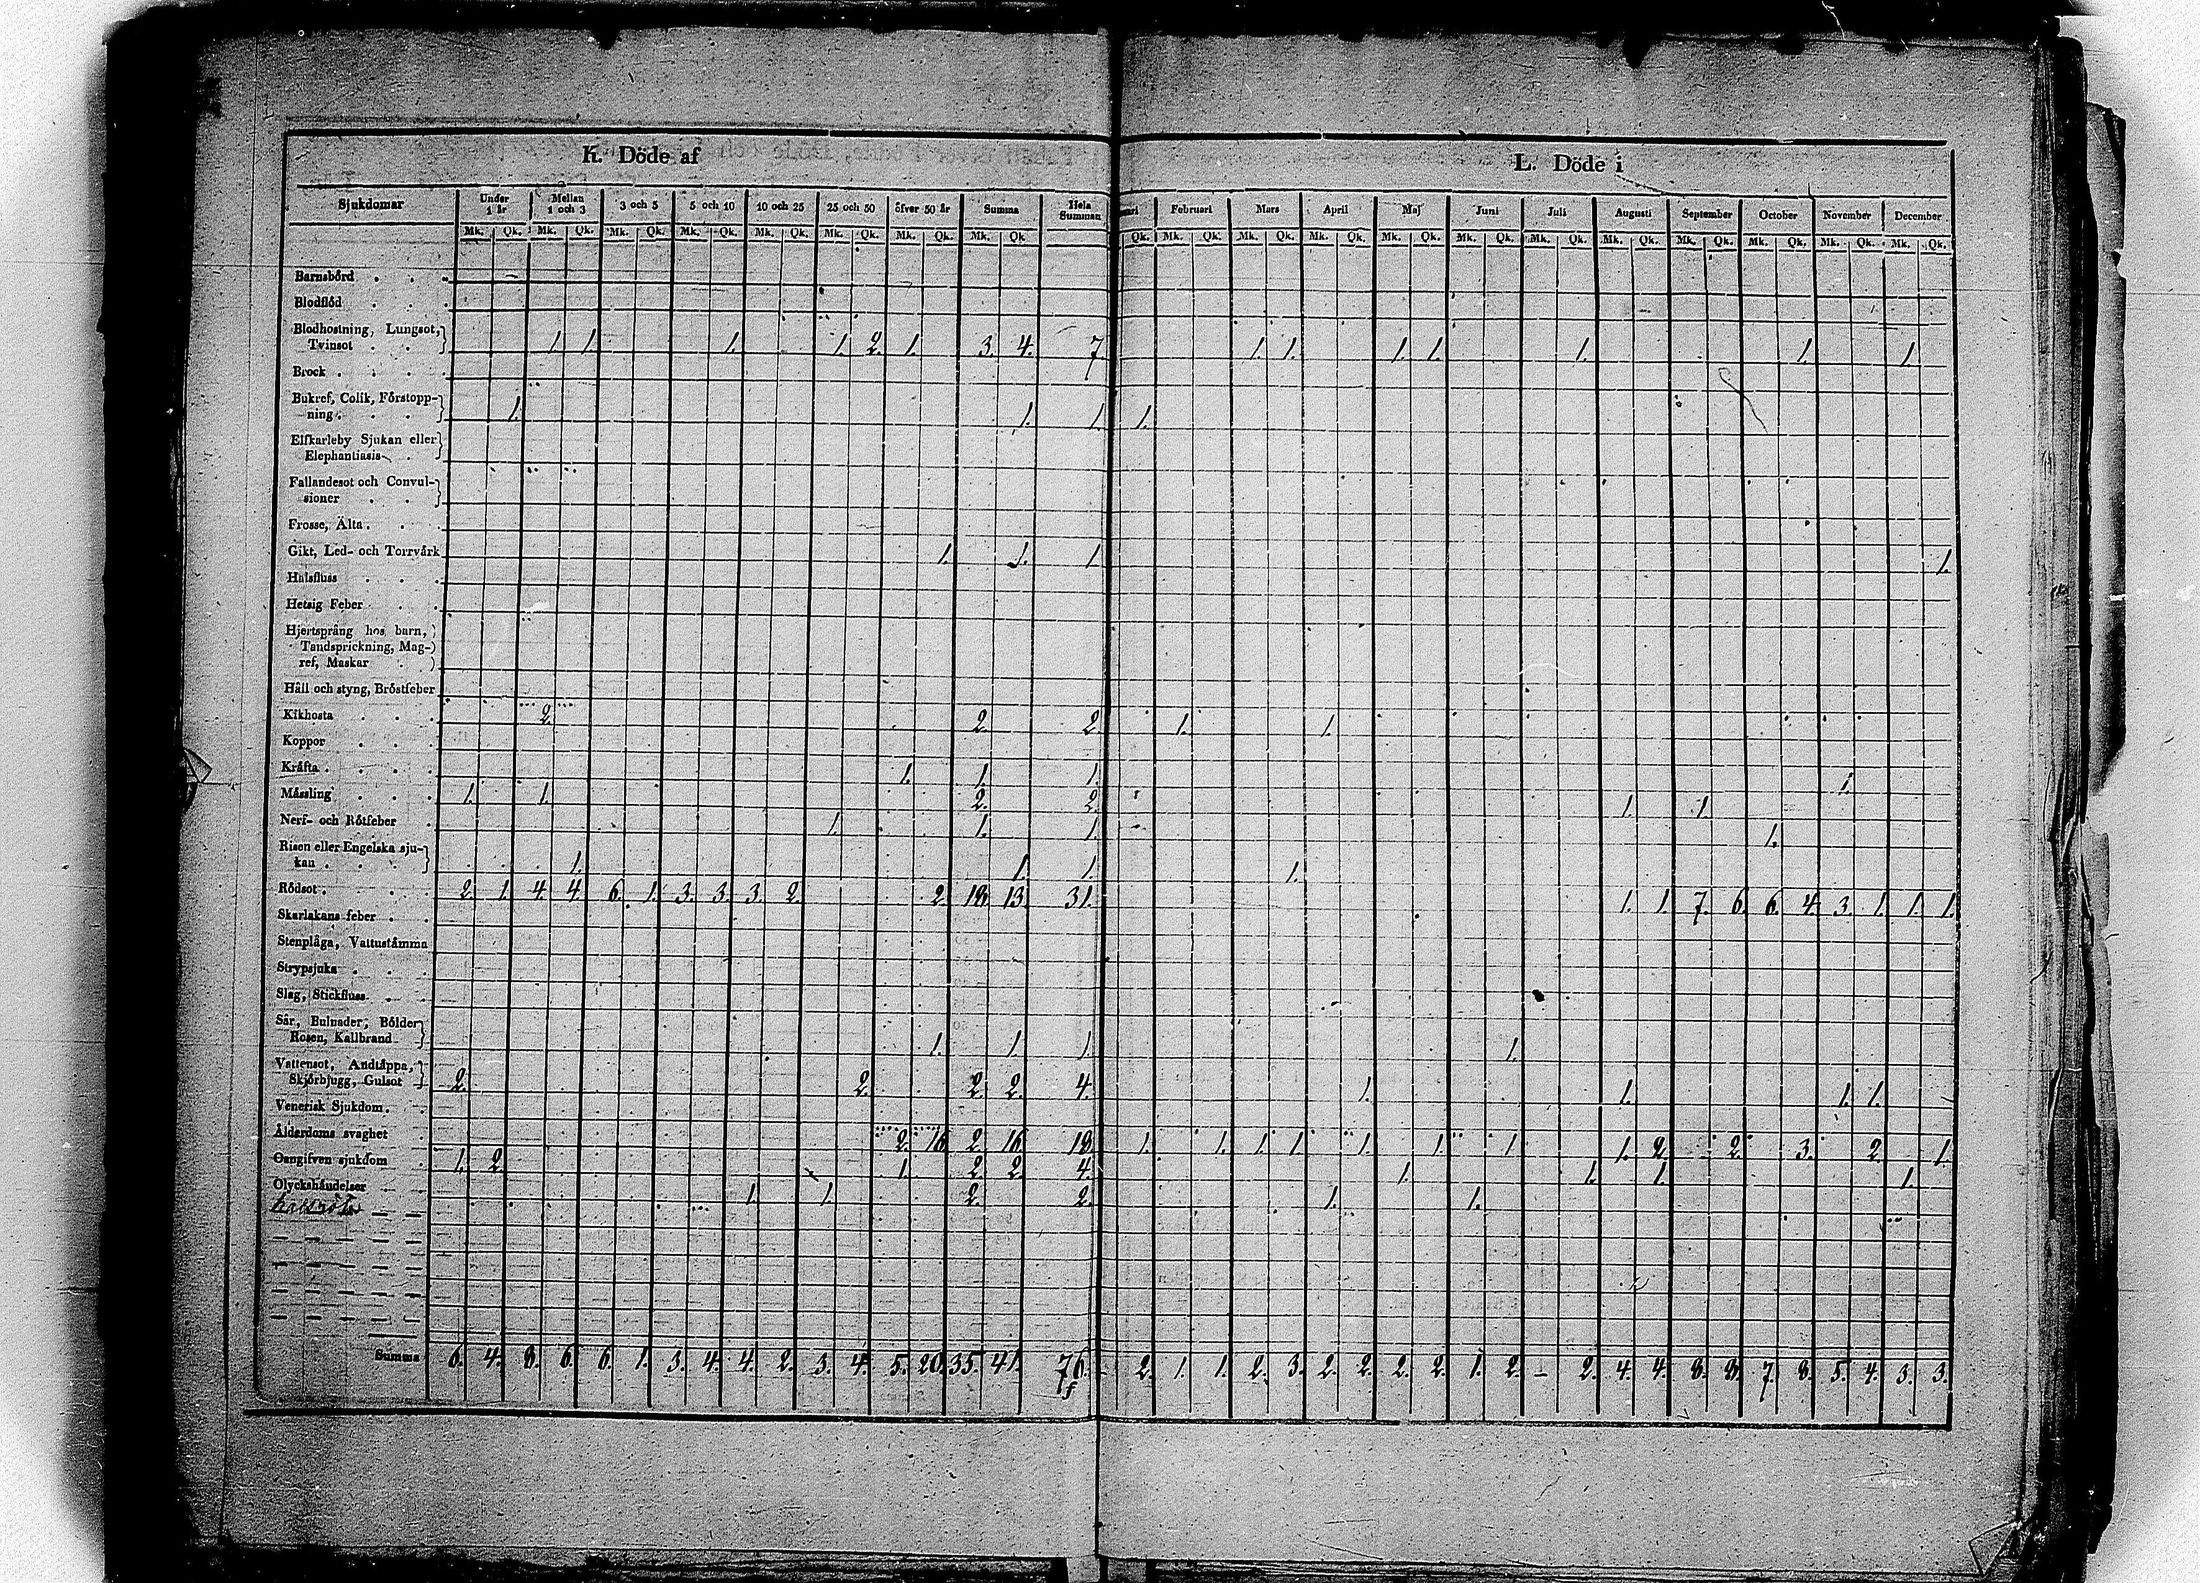 K. Döde af L. Döde i
Sjukdomar Under 1 år Mellan 1 och 3 3 och 5 5 och 10 10 och 25 25 och 50 öfver 50 år Summa Hela Summan Februari Mars April Maj Juni Juli Augusti September October November December
Mk. Qk. Mk. Qk. Mk. Qk. Mk. Qk. Mk. Qk. Mk. Qk. Mk. Qk. Mk. Qk. Qk. Mk. Qk. Mk. Qk. Mk. Qk. Mk. Qk. Mk. Qk. Mk. Qk. Mk. Qk. Mk. Qk. Mk. Qk. Mk. Qk. Mk. Qk.
Barnsbörd
Blodflöd
Blodhostning, Lungsot,
Tvinsot 1. 1. 1. 1. 2. 1. 3. 4. 7 1. 1. 1. 1. 1. 1. 1.
Brock
Bukref, Colik, Förstopp-
ning 1. 1. 1 1.
Elfkarleby Sjukan eller
Elephantiasis
Fallandesot och Convul-
sioner
Frosse, Älta
Gikt, Led- och Torrvärk 1. 1. 1. 1.
Halsfluss
Hetsig Feber
Hjertsprång hos barn,
Tandsprickning, Mag-
ref, Maskar
Håll och styng, Bröstfeber
Kikhosta 2. 2. 2. 1. 1.
Koppor
Kräfta 1. 1. 1. 1.
Mässling 1. 1. 2. 2. 1. 1.
Nerf- och Rötfeber 1. 1. 1. 1.
Risen eller Engelska sju-
kan 1. 1. 1. 1.
Rödsot 2. 1. 4. 4. 6. 1. 3. 3. 3. 2. 2. 18. 13. 31. 1. 1. 7. 6. 6. 4. 3. 1. 1. 1.
Skarlakans feber
Stenplåga, Vattustämma
Strypsjuka
Slag, Stickfluss
Sår, Bulnader, Bölder
Rosen, Kallbrand 1. 1. 1. 1.
Vattensot, Andtäppa,
Skjörbjugg, Gulsot 2. 2. 2. 2. 4. 1. 1. 1. 1.
Venerisk Sjukdom
Ålderdoms svaghet 2. 16. 2. 16. 18. 1. 1. 1. 1. 1. 1. 1. 1. 2. 2. 3. 2. 1.
Oangifven sjukdom 1. 2. 1. 2. 2. 4. 1. 1. 1. 1.
Olyckshändelser 1. 1. 2. 2. 1. 1.
Summa 6. 4. 8. 6. 6. 1. 3. 4. 4. 2. 3. 4. 5. 20. 35. 41. 76. 2. 1. 1. 2. 3. 2. 2. 2. 2. 1. 2. – 2. 4. 4. 8. 8. 7. 8. 5. 4. 3. 3.